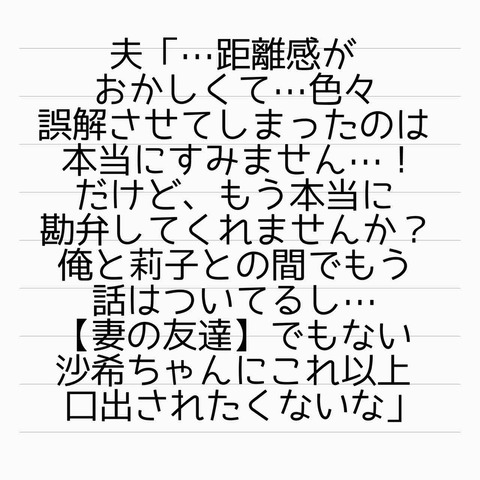 夫「…距離感が
おかしくて…色々
誤解させてしまったのは
本当にすみません…！
だけど、もう本当に
勘弁してくれませんか？
俺と莉子との間でもう
話はついてるし…
【妻の友達】でもない
沙希ちゃんにこれ以上
口出されたくないな」